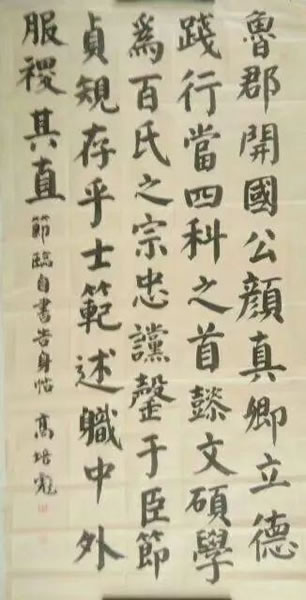 魯郡開國公顏真卿立德
踐行當四科之首懿文碩學
為百氏之宗忠讜罄于臣節
貞規存乎士範述職中外
服稷其直
節臨自書告身帖 高培寬